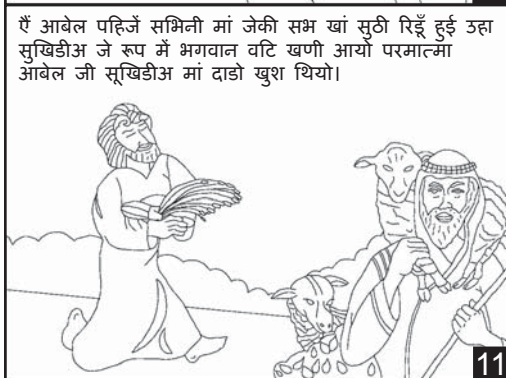 ऐं आबेल पहिजें सभिनी मां जेकी सभ खां सुठी रिडूँ हुई उहा
सुखिडीअ जे रूप में भगवान वटि खणी आयो परमात्मा
आबेल जी सूखिडीअ मां दाडो खुश थियो।
11